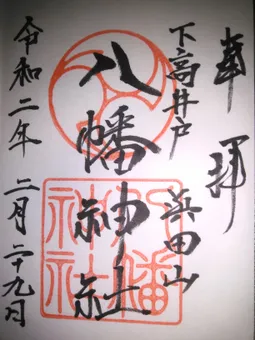 奉拝
下高井戸
浜田山
八幡神社
令和二年二月二十九日
八幡神社